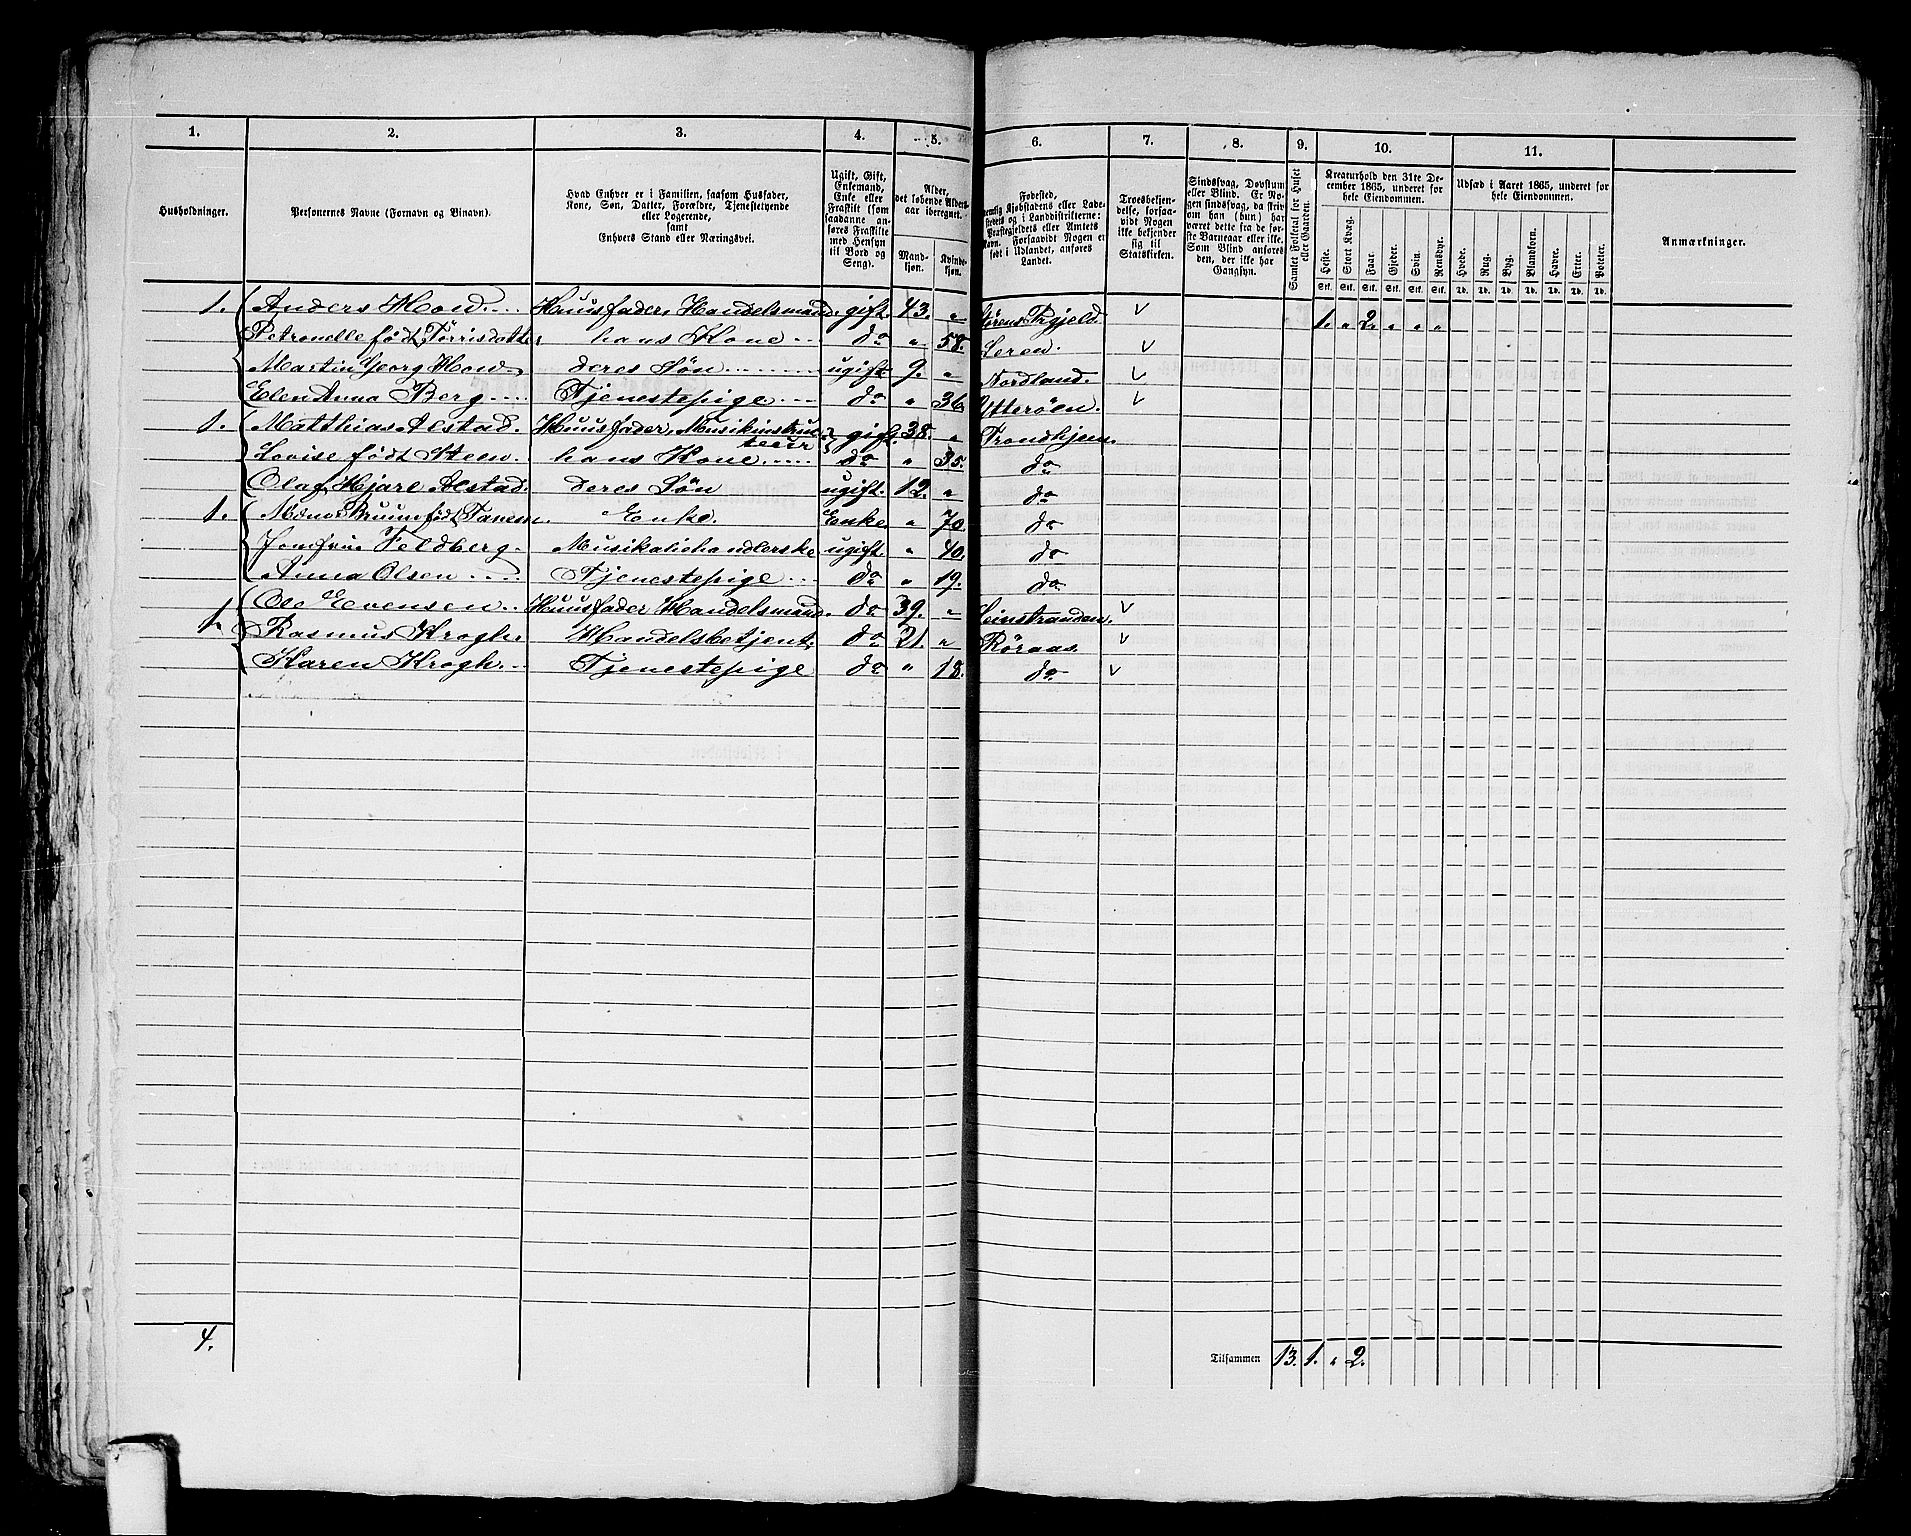 1. 2. 3. 4. 5. 6. 7. 8. 9. 10. 11.
Husholdninger.
Personernes Navne (Fornavn og Binavn).
Hvad Enhver er i Familien, saasom Husfader,
Kone, Søn, Datter, Forældre, Tjenestetyende
eller Logerende,
samt
Enhvers Stand eller Næringsvei.
Ugift, Gift,
Enkemand,
Enke eller
Fraskilt (som
saadanne an-
føres Fraskilte
med Hensyn
til Bord og
Seng).
Alder,
det løbende Alders-
aar iberegnet.
Mand-
kjøn.
Kvinde-
kjøn.
Fødested,
nemlig Kjøbstadens eller Lade-
stedets og i Landdistrikterne:
Præstegjeldets eller Amtets
Navn. Forsaavidt Nogen er
født i Udlandet, anføres
Landet.
Troesbekjen-
delse, forsaa-
vidt Nogen
ikke bekjender
sig til
Statskirken.
Sindssvag, Døvstum
eller Blind. Er No-
gen sindssvag, da skriv
om han (hun) har
været dette fra de før-
ste Barneaar eller ikke.
Som Blind anføres
den, der ikke har
Gangsyn.
Samlet Folketal for Huset
eller Gaarden.
Kreaturhold den 31te De-
cember 1865, underet for
hele Eiendommen.
Heste. Stort Kvæg. Faar. Gjeder. Svin. Rensdyr.
Stk. Stk. Stk. Stk. Stk. Stk.
Udsæd i Aaret 1865, underet for
hele Eiendommen.
Hvede. Rug. Byg. Blandkorn. Havre. Erter. Poteter.
Td. Td. Td. Td. Td. Td. Td.
Anmærkninger.
1. Anders How Huusfader, Handelsmand. gift. 43. " Størens Prgjeld. 1. " 2. " " "
Petronelle født Törrisdatter hans Kone do " 58. Leren.
Martin Georg How deres Søn ugift 9. " Nordland.
Elen Anna Berg Tjenestepige do " 36. Ytterøen.
1. Matthias Alstad. Huusfader, Musikinstruc-
teur gift. 38. " Trondhjem.
Lovise født Steen hans Kone do " 35. do
Olaf Hjarl Alstad. deres Søn ugift. 12. " do
1. Bruun født Tanem. Enke. Enke " 70. do
Jomfru Feldberg. Musikaliehandlerske ugift " 40. do
Anna Olsen Tjenestepige do " 19. do
1. Ole Evensen Huusfader Handelsmand. do 39. " Leinstranden.
Rasmus Krogh. Handelsbetjent. do 21. " Röraas.
Karen Krogh. Tjenestepige do " 18. do
4.
Tilsammen 13. 1. " 2.